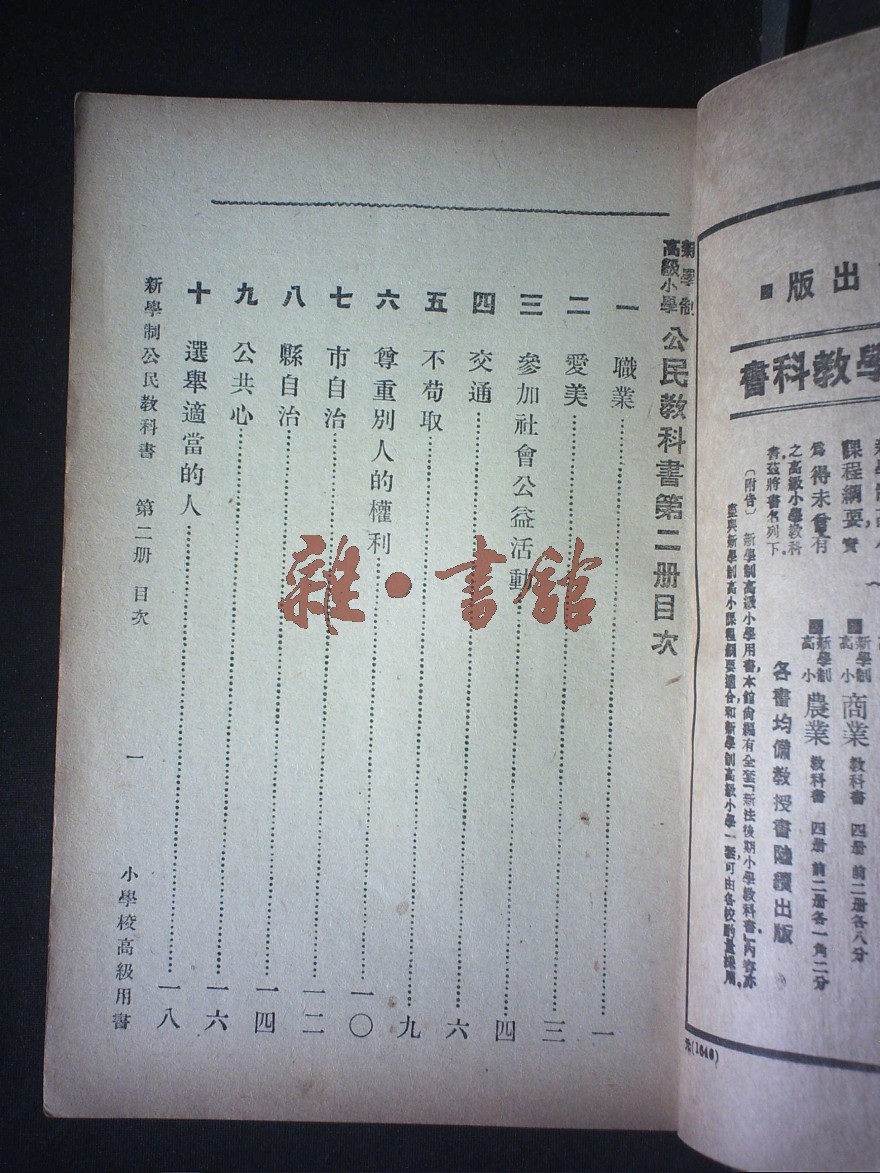 版出
書科教學
課程綱要實
爲得未曾有
之高級小學教科
書茲將書名列下
〔附告〕 新學制高級小學用書，本館尙編有全套『新法後期小學教科書』，內容亦
應與新學制高小課程綱要適合，和新學制高級小學一
新學制高小 商業 教科書 四册 前二册各八分
新學制高小 農業 教科書 四册 前二册各一角二分
各書均備教授書陸續出版
(1640)
新學制高級小學 公民教科書第二册目次
一 職業 一
二 愛美 三
三 參加社會公益活動 四
四 交通 六
五 不苟取 九
六 尊重別人的權利 一〇
七 市自治 一二
八 縣自治 一四
九 公共心 一六
十 選舉適當的人 一八
新學制公民教科書 第二册 目次 一 小學校高級用書
雜·書館